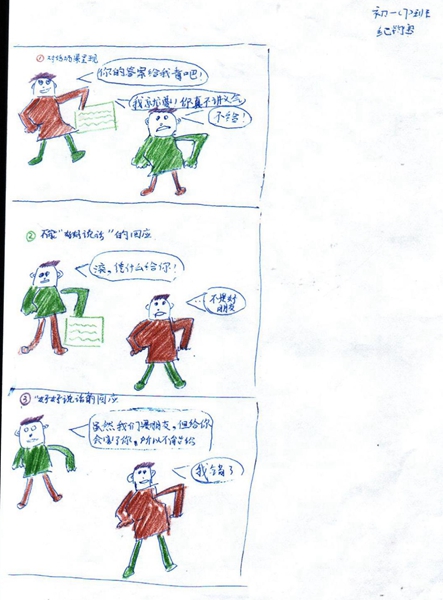 初一(7)班
①对话场景呈现
你的答案给我看吧!
我就知道你真不讲义气
不给!
②不"好好说话"的回应
滚,凭什么给你!
不是好
朋友
③"好好说话的回应
虽然我们是朋友,但给你
会害了你,所以不能给
我错了